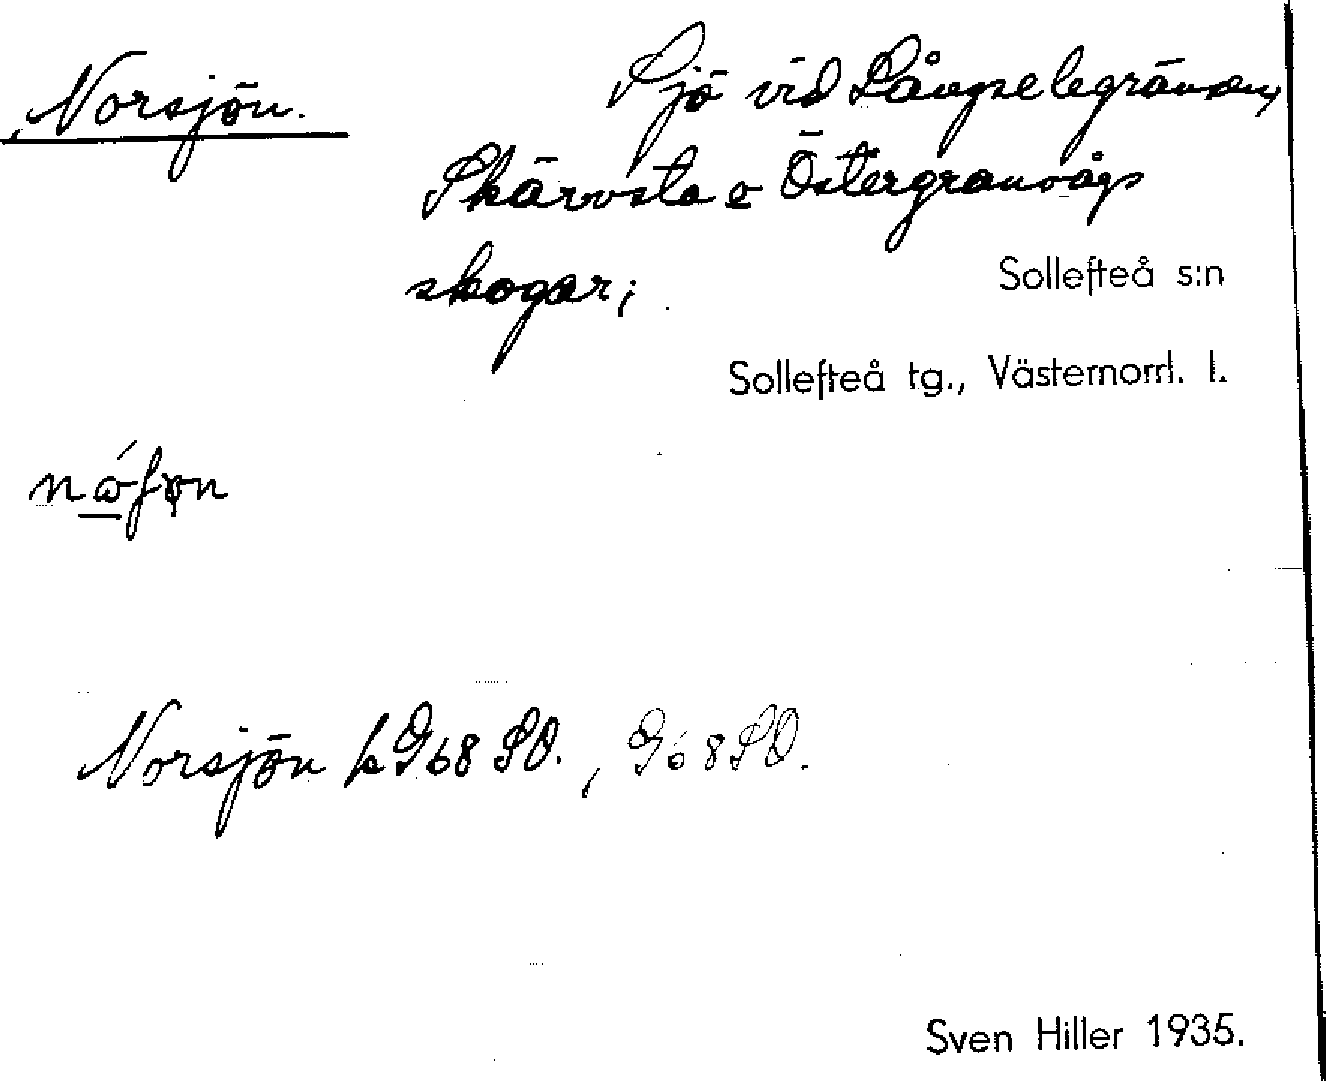 Norsjön.
Sjö vid Långselegränsen,
Skärvsta o Östergransågs
skogar;
Sollefteå s:n
Sollefteå tg., Västernorrl. l.
Norsjön k G68 SO., G68SO.
Sven Hiller 1935.